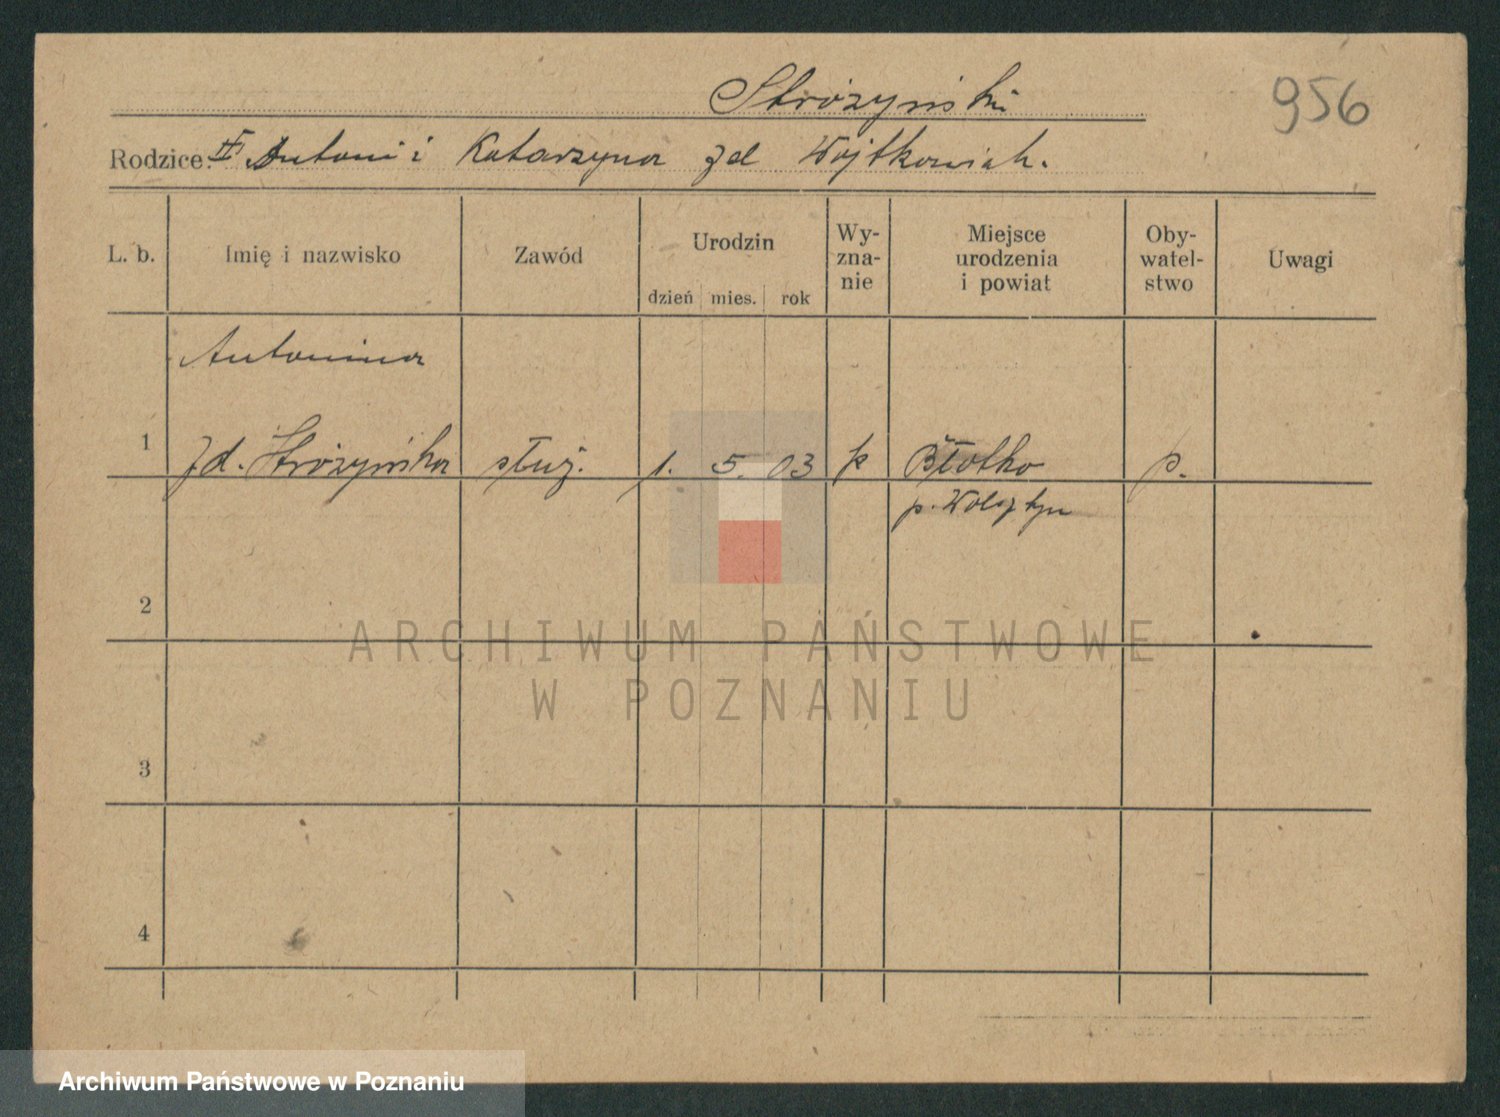 Stróżyński
956
Rodzice: Antoni i Katarzyna zd Wojtkowiak.
L. b.
Imię i nazwisko
Zawód
Urodzin
dzień mies. rok
Wy-
zna-
nie
Miejsce
urodzenia
i powiat
Oby-
watel-
stwo
Uwagi
Antonina
1 zd. Stróżyńska służ. 1. 5. 03 k Błotko p.
p. Wolsztyn
2
3
4
ARCHIWUM PAŃSTWOWE
W POZNANIU
Archiwum Państwowe w Poznaniu